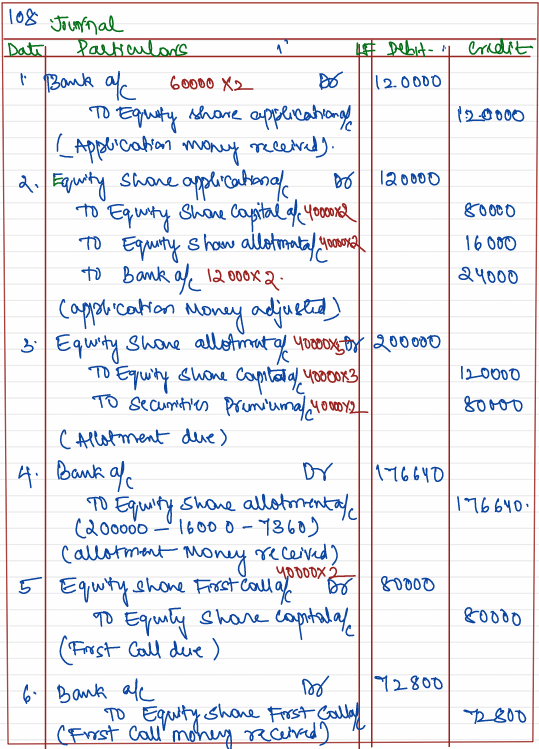 108 Journal
Date Particulars 1' LF Debit- Credit
1. Bank a/c 60000 X2 Dr 120000
To Equity share application a/c 120000
( Application money received).
2. Equity Share application a/c Dr 120000
To Equity Share Capital a/c 40000x2 80000
To Equity Share allotment a/c 40000x2 16000
To Bank a/c 12000X2. 24000
(application Money adjusted)
3. Equity Share allotment a/c 40000x5 Dr 200000
To Equity Share Capital a/c 40000x3 120000
To Securities Premium a/c 40000x2 80000
( Allotment due )
4. Bank a/c Dr 176640
To Equity Share allotment a/c 176640.
(200000 - 16000 - 7360)
(allotment Money received)
5 Equity share First Call a/c 40000X2 Dr 80000
To Equity Share capital a/c 80000
(First Call due )
6. Bank a/c Dr 72800
To Equity Share First Call a/c 72800
(First Call money received)